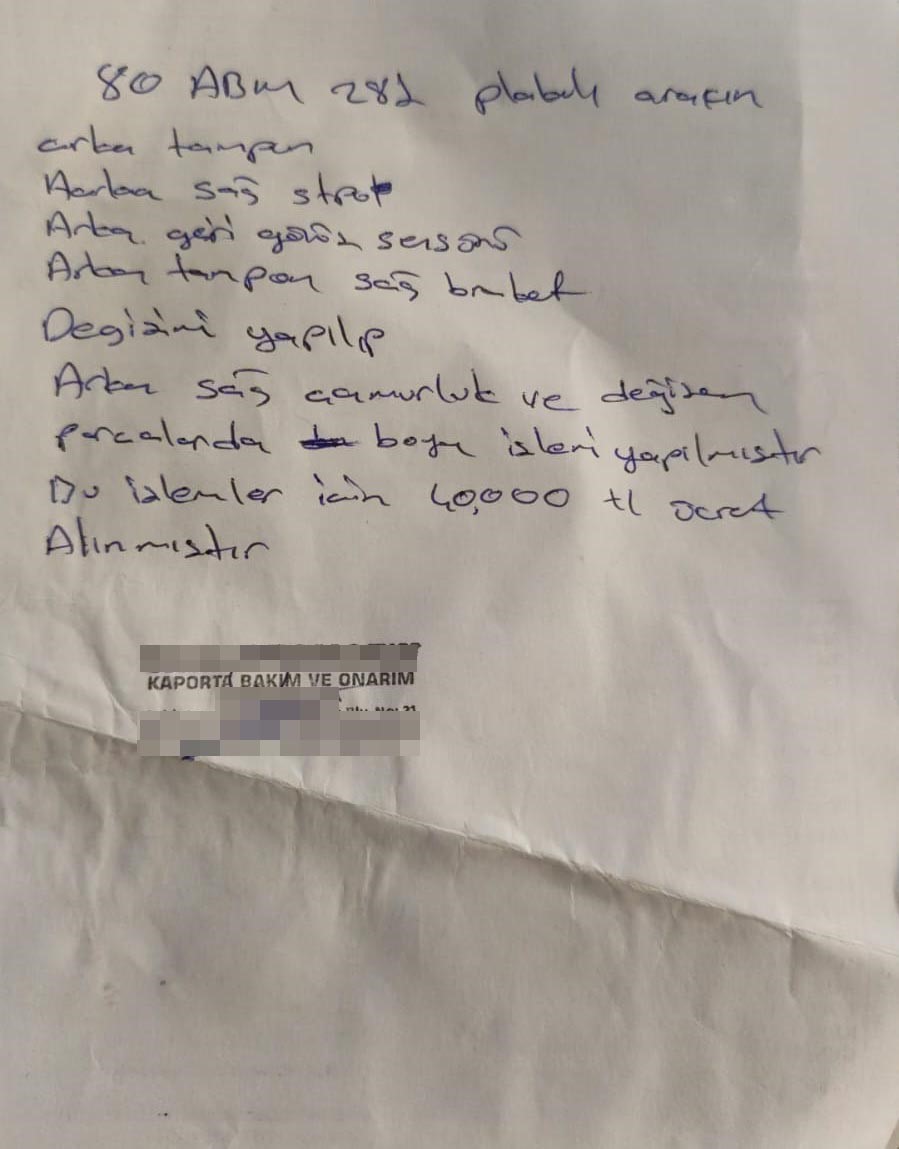 80 ABM 282 plakalı aracın
arka tampon
Aarka sağ stop
Arka geri görüş sensörü
Arka tampon sağ braket
Degişimi yapılıp
Arka sağ çamurluk ve değişen
parcalarda boya işleri yapılmıştır
Bu işlemler için 40,000 tl ücret
Alınmıştır
KAPORTA BAKIM VE ONARIM